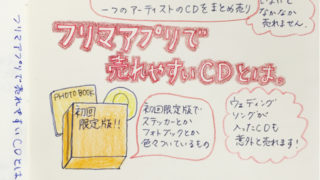 一つのアーティストのCDをまとめ売り
なかなか
売れません。
フリマアプリで
売れやすいCDとは。
フリマアプリで売れやすいCDとは
PHOTO BOOK
初回
限定版!!
初回限定版で
ステッカーとか
フォトブックとか
色々ついているもの
ウェディング
ソングが
入ったCDも
意外と売れます!